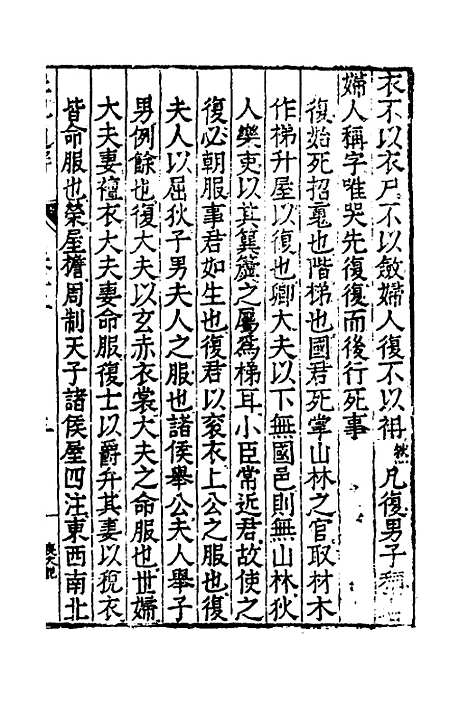 衣不以衣尸不以斂婦人復不以袡凡復男子稱
婦人稱字唯哭先復復而後行死事
復始死招䰟也階梯也國君死掌山林之官取材木
作梯升屋以復也卿大夫以下無國邑則無山林狄
人樂吏以其簨簴之屬為梯耳小臣常近君故使之
復必朝服事君如生也復君以衮衣上公之服也復
夫人以屈狄子男夫人之服也諸侯舉公夫人舉子
男例餘也復大夫以玄赤衣裳大夫之命服也世婦
大夫妻襢衣大夫妻命服復士以爵弁其妻以稅衣
皆命服也榮屋檐周制天子諸侯屋四注東西南北